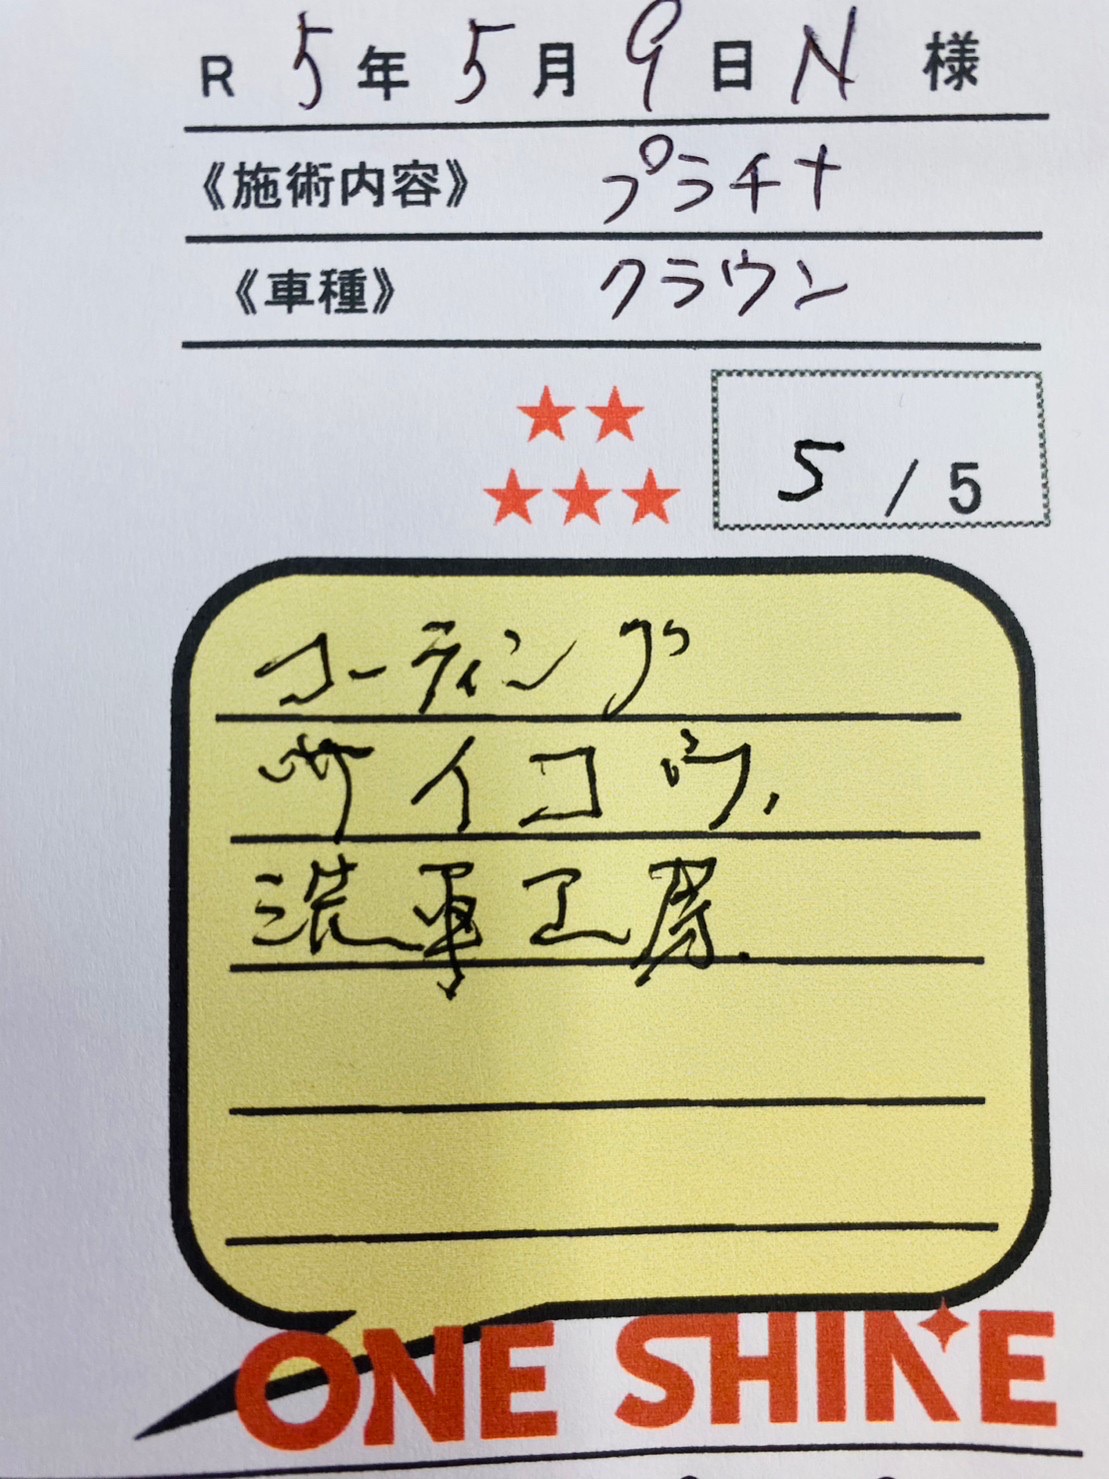 R 5年 5月 9日 N 様
《施術内容》 プラチナ
《車種》 クラウン
★★
★★★
5 / 5
コーティング
サイコウ、
洗車工房.
ONE SHINE